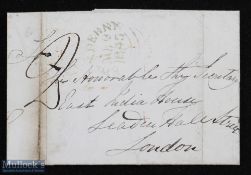 2
PENNY
The Honorable The Secretary
East India House
Leaden Hall Street
London
Mullock's